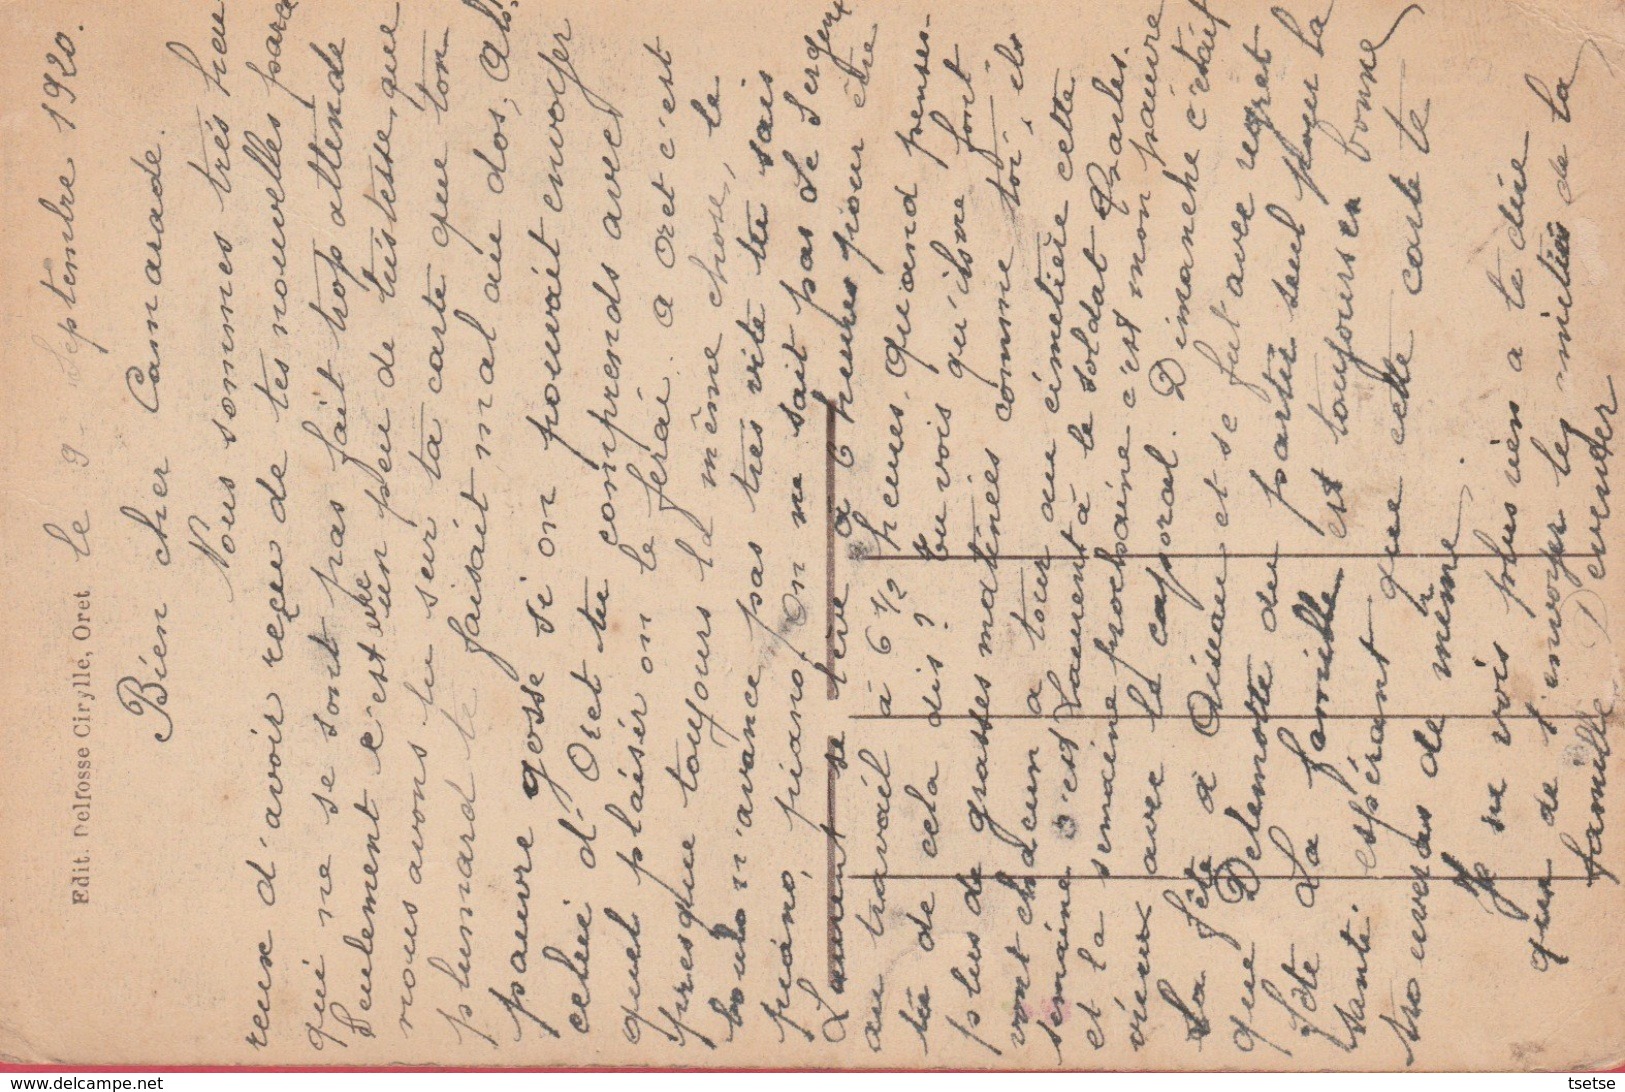 Edit. Delfosse Cirylle, Oret
le 9 - Septembre 1920.
Bien cher Camarade.
Nous sommes très heu
reux d'avoir reçu de tes nouvelles parce
qui ne se sont pas fait trop attende
Seulement c'est avec un peu de tristesse que
nous avons lu sur ta carte que ton
plumard te faisait mal au dos,
pauvre gosse si on pouvait envoyer
celui d'Oret tu comprends avec
quel plaisir on le ferai. a Oret c'est
presque toujours la même chose, le
boulo n'avance pas tres vite tu sais
piano, piano, on ne sait pas Le Sergent
Laurent se lève à 6 heures pour être
au travail à 6 1/2 heures. quand penses-
tu de cela dis? tu vois qu'ils ne font
plus de grasses matinées comme toi, ils
vont chacun a tour au cimetière cette
semaine c'est Laurent à le soldat Praile.
et la semaine prochaine c'est mon pauvre
vieux avec le caporal. Dimanche c'était
La fête a Oiseau et se fut avec regret
que Delemotte du partir seul pour la
fête La famille est toujours en bonne
santé. espérant que cette carte te
trouveras de même.
Je ne vois plus rien a te dire
que de t'envoyer les mitiés de la
famille Decuyper
tsetse